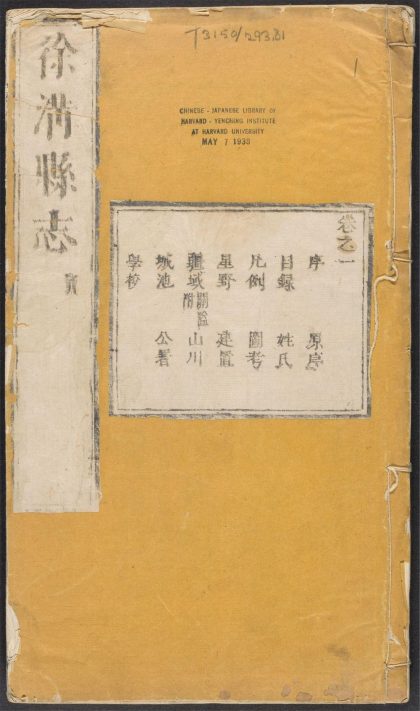 徐溝縣志
CHINESE - JAPANESE LIBRARY OF
HARVARD - YENCHING INSTITUTE
AT HARVARD UNIVERSITY
MAY 7 1938
1
卷之一
序 原序
目録 姓氏
凡例 圖考
星野 建置
疆域 關隘附 山川
城池 公署
學校